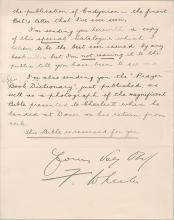 the publication of Endymion is the finest
Keats letter that I've ever seen,
I'm sending you herewith a copy
of this special Catalogue which I
believe to be the best ever issued by any
bookseller but I'm not issuing it to the
public till you have been to see me.
I'm also sending you the "Prayer
Book Dictionary", just published, as
well as a photograph of the magnificent
Bible presented to Charles II when he
landed at Dover on his return from
exile.
This Bible is reserved for you
Yours
F Wheeler